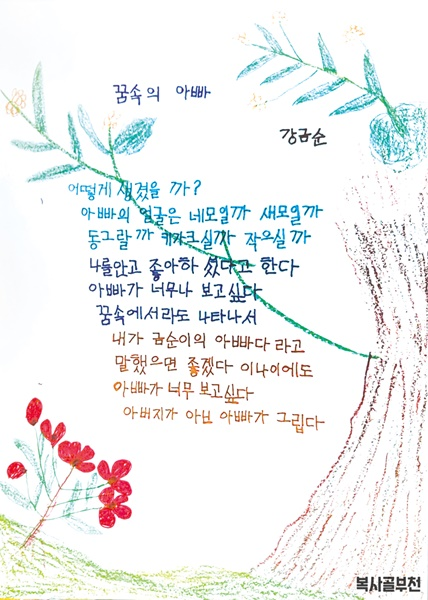 꿈속의 아빠
강금순
어떻게 생겼을 까?
아빠의 얼굴은 네모일까 새모일까
동그랄 까 키가크실까 작으실까
나를안고 좋아하 셨다고 한다
아빠가 너무나 보고싶다
꿈속에서라도 나타나서
내가 금순이의 아빠다 라고
말했으면 좋겠다 이나이에도
아빠가 너무 보고싶다
아버지가 아닌 아빠가 그립다
복사골부천